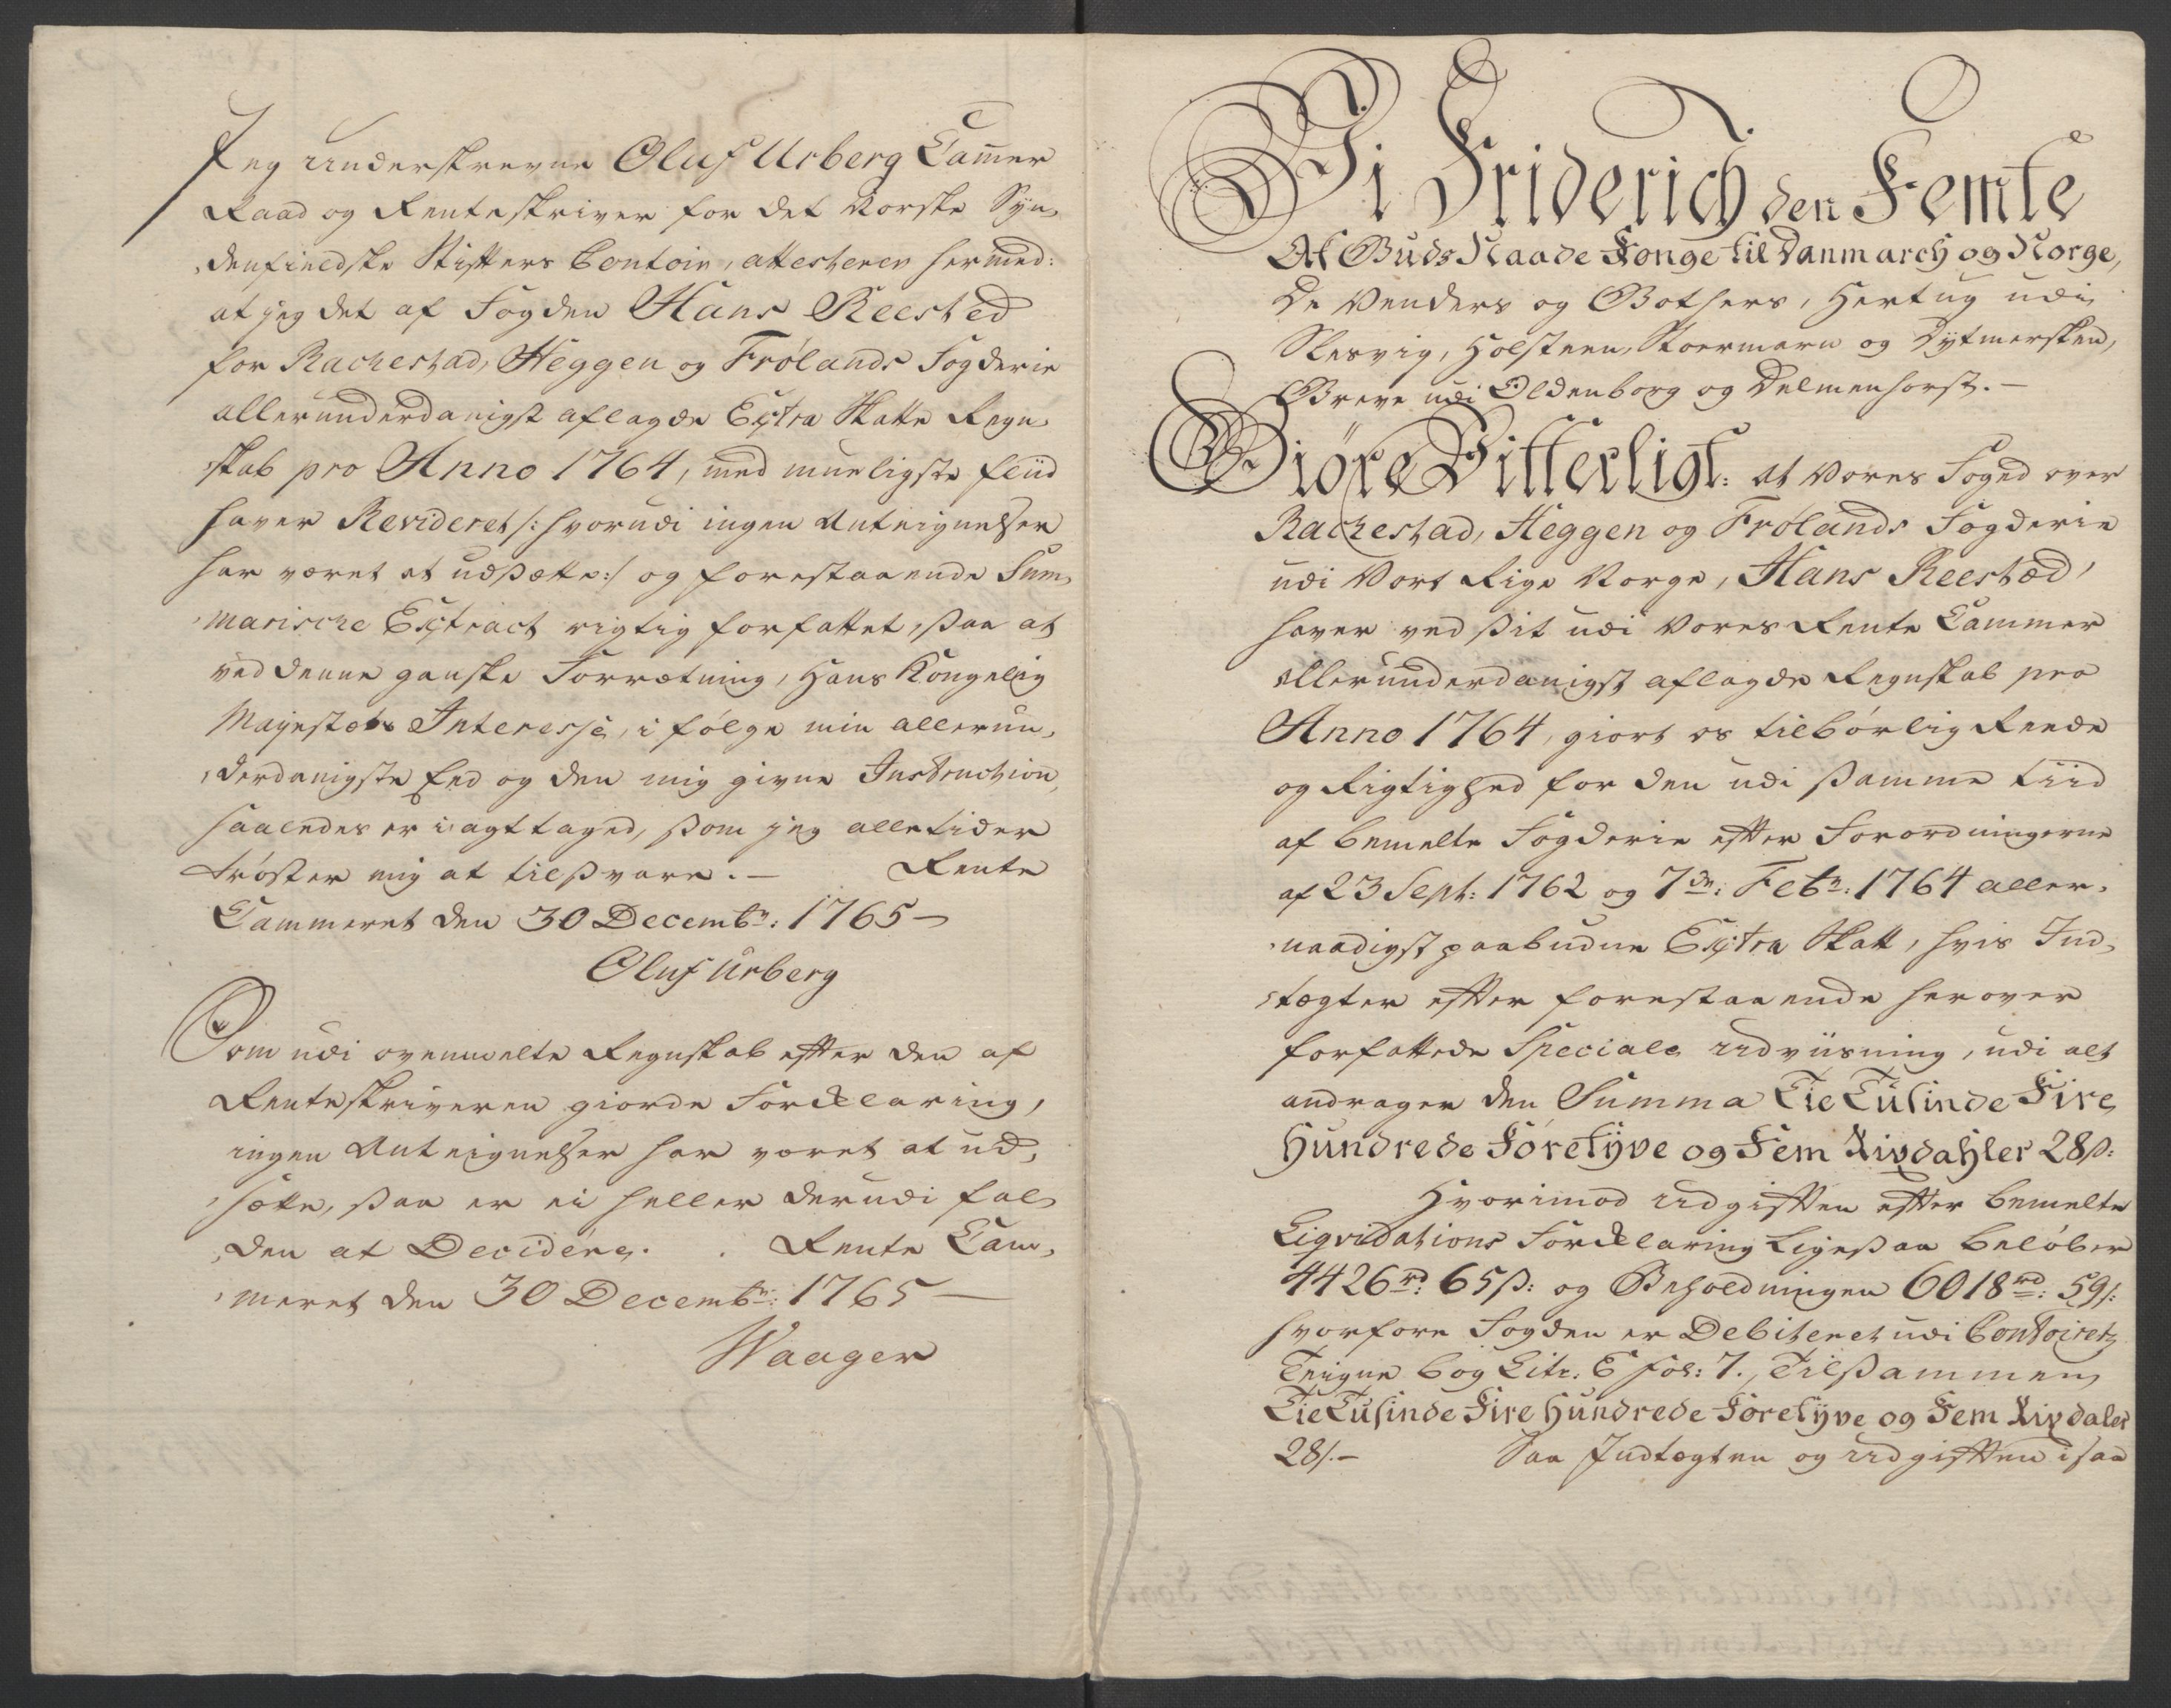 Jeg Underskrevne Oluf Urberg Cammer
Raad og Renteskriver for det Norske Syn,
,denfieldske Stifters Contoir, attesterer hermed:
at jeg det af Fogden Hans Reested
for Rachestad, Heggen og Frølands Fogderie
allerunderdanigst aflagde Extra Skatte Regn,
,skab pro Anno 1764, med mueligste fliid
haver Revideret /: hvorudi ingen Anteignelser
har været at udsætte :/ og forestaaende Sum,
,marische Extract rigtig forfattet, saa at
ved denne ganske Forrætning, Hans Kongelig
Mayestæts Interesse, i følge min allerun,
,derdanigste Eed og den mig givne Instruction,
saaledes er i agttaged, som jeg alletider
trøster mig at tilsvare. — Rente
Cammeret den 30 Decembr: 1765 —
Oluf Urberg
Som udi ovenmelte Regnskab efter den af
Renteskriveren giorde Forklaring,
ingen Anteignelser har været at ud,
,sætte, saa er ei heller derudi fal,
,den at Decidére. Rente Cam,
,meret den 30 Decembr: 1765 —
Waager
Vi Friderich den Femte
Af Guds Naade Konge til Danmarch og Norge,
De Venders og Gothers, Hertug udi
Slesvig, Holsteen, Stoermarn og Dytmersken,
Greve udi Oldenborg og Delmenhorst. —
Giøre Vitterligt: At Vores Foged over
Rachestad, Heggen og Frølands Fogderie
udi Vort Rige Norge, Hans Reestæd,
haver ved sit udi Vores Rente Cammer
allerunderdanigst aflagde Regnskab pro
Anno 1764, giort os tilbørlig Reede
og Rigtighed for den udi samme tiid
af bemelte Fogderie efter Forordningerne
af 23 Sept: 1762 og 7de: Febr: 1764 aller,
,naadigst paabudne Extra Skatt, hvis Ind,
,tægter efter forestaaende herover
forfattede Speciale Udviisning, udi alt
andrager den Summa Tie Tusinde Fire
Hundrede Føretyve og Fem Rixdahler 28 ß:
Hvorimod Udgiften efter bemelte
Liqvidations Forklaring ligesaa beløber
4426 rd: 65 ß: og Beholdningen 6018 rd: 59 ß:
hvorfore Fogden er Debiteret udi Contoirets
Teigne bog Litr. E fol: 7., Tilsammen
Tie Tusinde Fire Hundrede Føretyve og Fem Rixdaler
28 ß. — Saa Indtægten og Udgiften i saa